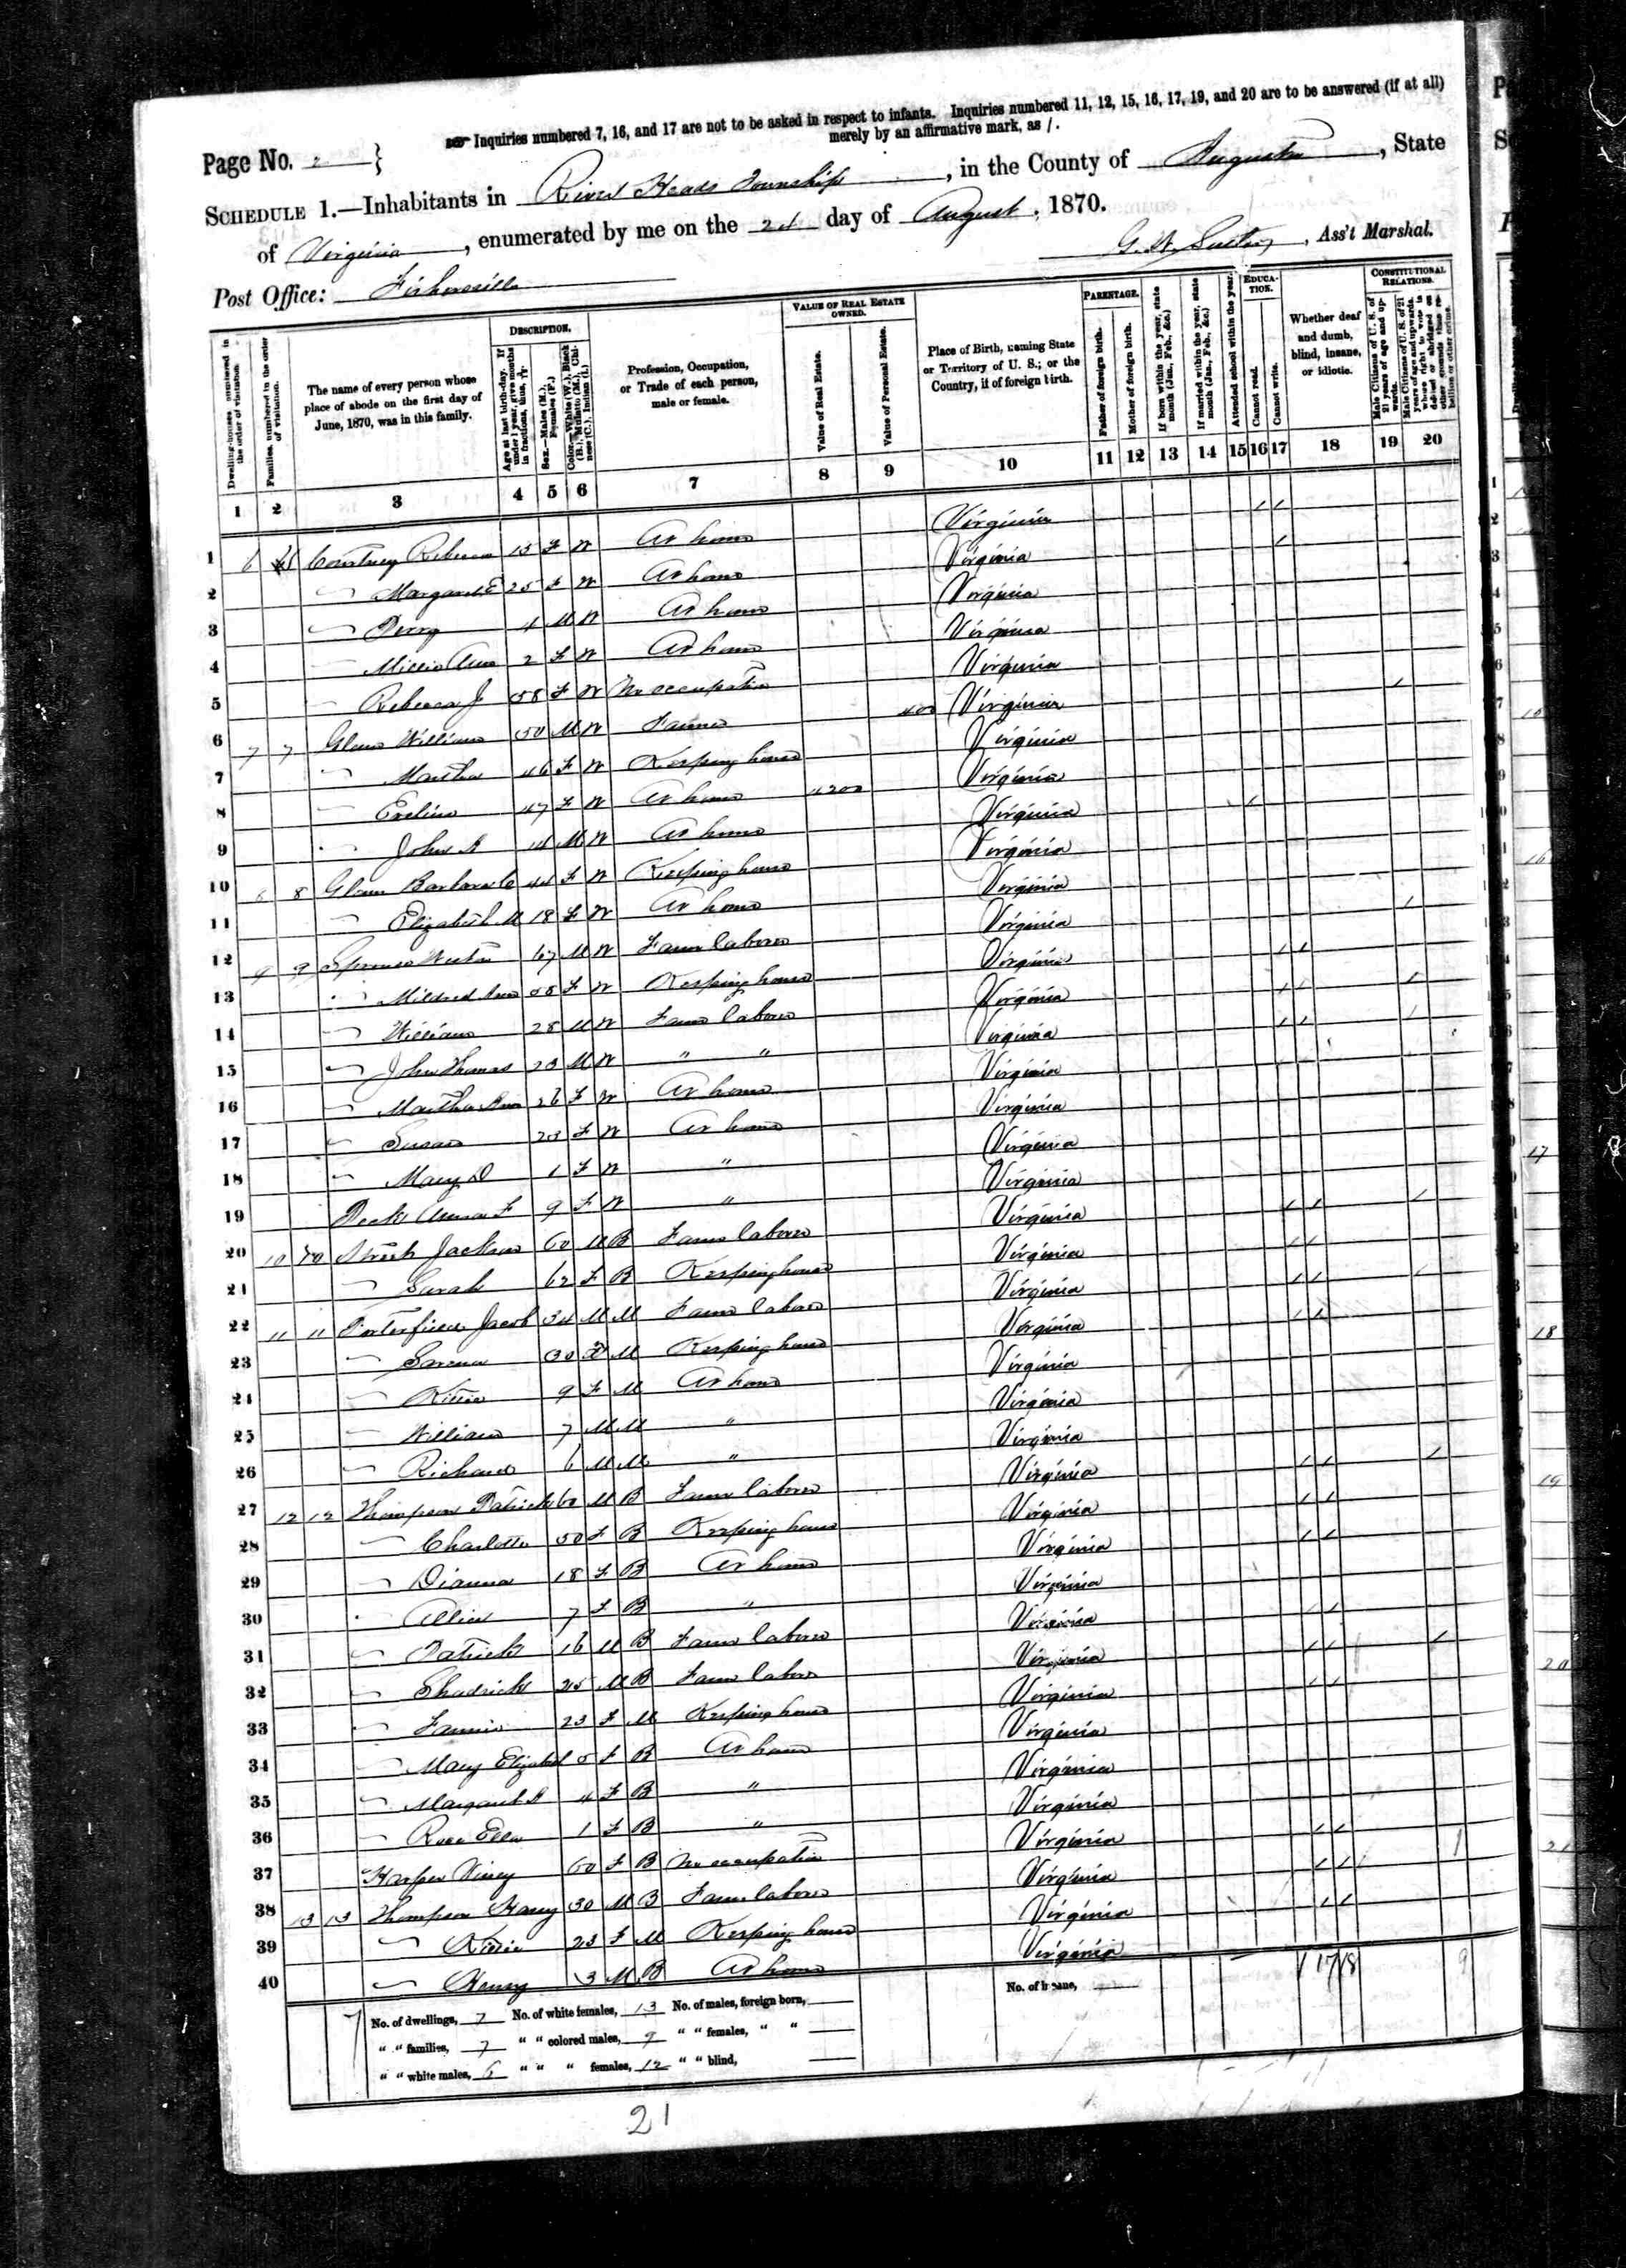 Inquiries numbered 7, 16, and 17 are not to be asked in respect to infants. Inquiries numbered 11, 12, 15, 16, 17, 19, and 20 are to be answered (if at all)
merely by an affirmative mark, as /.
Page No. 2 }
SCHEDULE 1.—Inhabitants in River Heads Township, in the County of Augusta, State
of Virginia, enumerated by me on the 2d day of August, 1870.
G. W., Ass't Marshal.
Post Office: Fishersville
Dwelling-houses numbered in the order of visitation.
Families, numbered in the order of visitation.
The name of every person whose place of abode on the first day of June, 1870, was in this family.
DESCRIPTION.
Age at last birth-day. If under 1 year, give months in fractions, thus,
Sex.—Males (M.), Females (F.)
Color.—White (W.), Black (B.), Mulatto (M.), Chinese (C.), Indian (I.)
Profession, Occupation, or Trade of each person, male or female.
VALUE OF REAL ESTATE OWNED.
Value of Real Estate.
Value of Personal Estate.
Place of Birth, naming State or Territory of U. S.; or the Country, if of foreign birth.
PARENTAGE.
Father of foreign birth.
Mother of foreign birth.
If born within the year, state month (Jan., Feb., &c.)
If married within the year, state month (Jan., Feb., &c.)
Attended school within the year.
EDUCATION.
Cannot read.
Cannot write.
Whether deaf and dumb, blind, insane, or idiotic.
CONSTITUTIONAL RELATIONS.
Male Citizens of U. S. of 21 years of age and upwards.
Male Citizens of U. S. of 21 years of age and upwards, whose right to vote is denied or abridged on other grounds than rebellion or other crime.
1 2 3 4 5 6 7 8 9 10 11 12 13 14 15 16 17 18 19 20
1 6 Courtney Rebecca 15 F W At home Virginia / /
2 — Margaret E 25 F W At home Virginia /
3 — Perry 4 M W At home Virginia
4 — Millie Ann 2 F W At home Virginia
5 — Rebecca J 58 F W No occupation Virginia
6 7 7 Glenn William 50 M W Farmer 400 Virginia /
7 — Martha 46 F W Keeping house Virginia
8 — Eveline 47 F W At home 4200 Virginia
9 — John A 14 M W At home Virginia /
10 8 8 Glenn Barbara C 44 F W Keeping house Virginia
11 — Elizabeth M 18 F W At home Virginia
12 9 9 67 M W Farm laborer Virginia /
13 — Mildred Ann 58 F W Keeping house Virginia / /
14 — William 28 M W Farm laborer Virginia / / /
15 — John Thomas 23 M W " " Virginia / / /
16 — Martha Ann 26 F W At home Virginia
17 — Susan 23 F W At home Virginia
18 — Mary D 1 F W " Virginia
19 9 F W " Virginia
20 10 10 Jackson 60 M B Farm laborer Virginia / / /
21 — Sarah 62 F B Keeping house Virginia / /
22 11 11 Porterfield Jacob 34 M M Farm laborer Virginia / / /
23 — 30 F M Keeping house Virginia / /
24 — Kittie 9 F M At home Virginia
25 — William 7 M M " Virginia
26 — Richard 6 M M " Virginia
27 12 12 Thompson Patrick 60 M B Farm laborer Virginia / / /
28 — Charlotte 50 F B Keeping house Virginia / /
29 — Dianna 18 F B At home Virginia / /
30 — 7 F B " Virginia
31 — Patrick 16 M B Farm laborer Virginia / /
32 — Shadrick 25 M B Farm laborer Virginia / / /
33 — Fannie 23 F M Keeping house Virginia / /
34 — Mary Elizabeth 5 F B At home Virginia
35 — Margaret A 4 F B " Virginia
36 — Rosa Ella 1 F B " Virginia
37 Harper Viney 60 F B No occupation Virginia / /
38 13 13 Thompson Harry 30 M B Farm laborer Virginia / / /
39 — Kittie 23 F M Keeping house Virginia / /
40 — Henry 3 M B At home Virginia
No. of dwellings, 7 No. of white females, 13 No. of males, foreign born, No. of insane,
" " families, 7 " " colored males, 9 " " females, " "
" " white males, 6 " " " females, 12 " " blind,
17 18 9
21